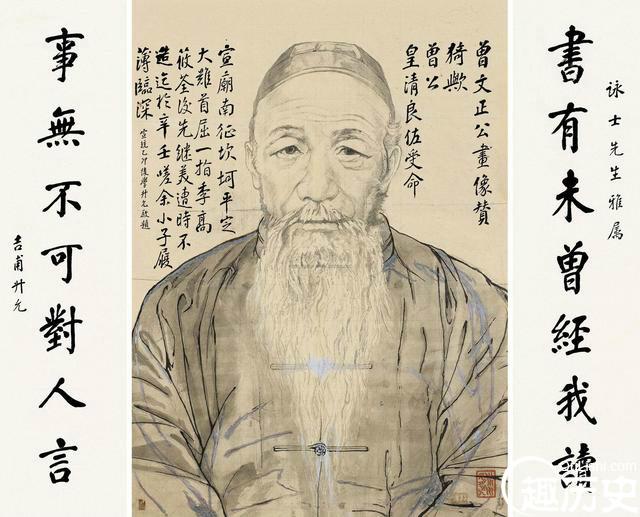 詠士先生雅属
書有未曾經我讀
曾文正公畫像贊
猗歟
曾公
皇清良佐受命
宣廟南征坎坷平定
大難首屈一指李高
筱荃後先继美遭時不
造迄於辛壬嗟余小子履
薄臨深
宣統乙卯後學升允敬題
事無不可對人言
吉甫升允
趣历史